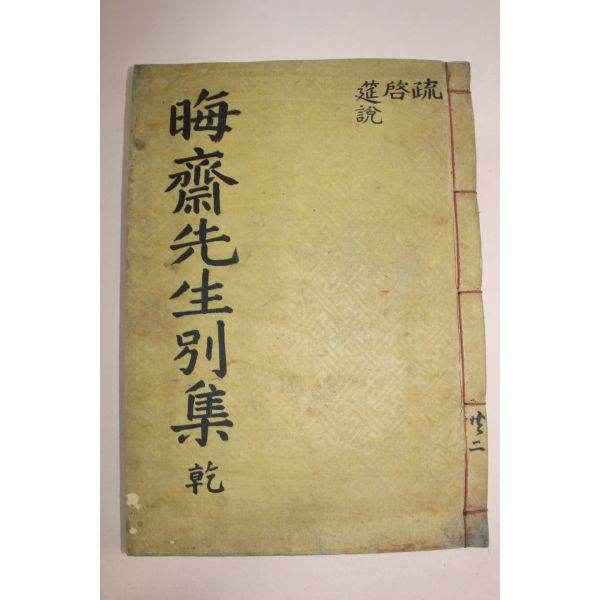 疏
啓
筵說
晦齋先生別集 乾
共二